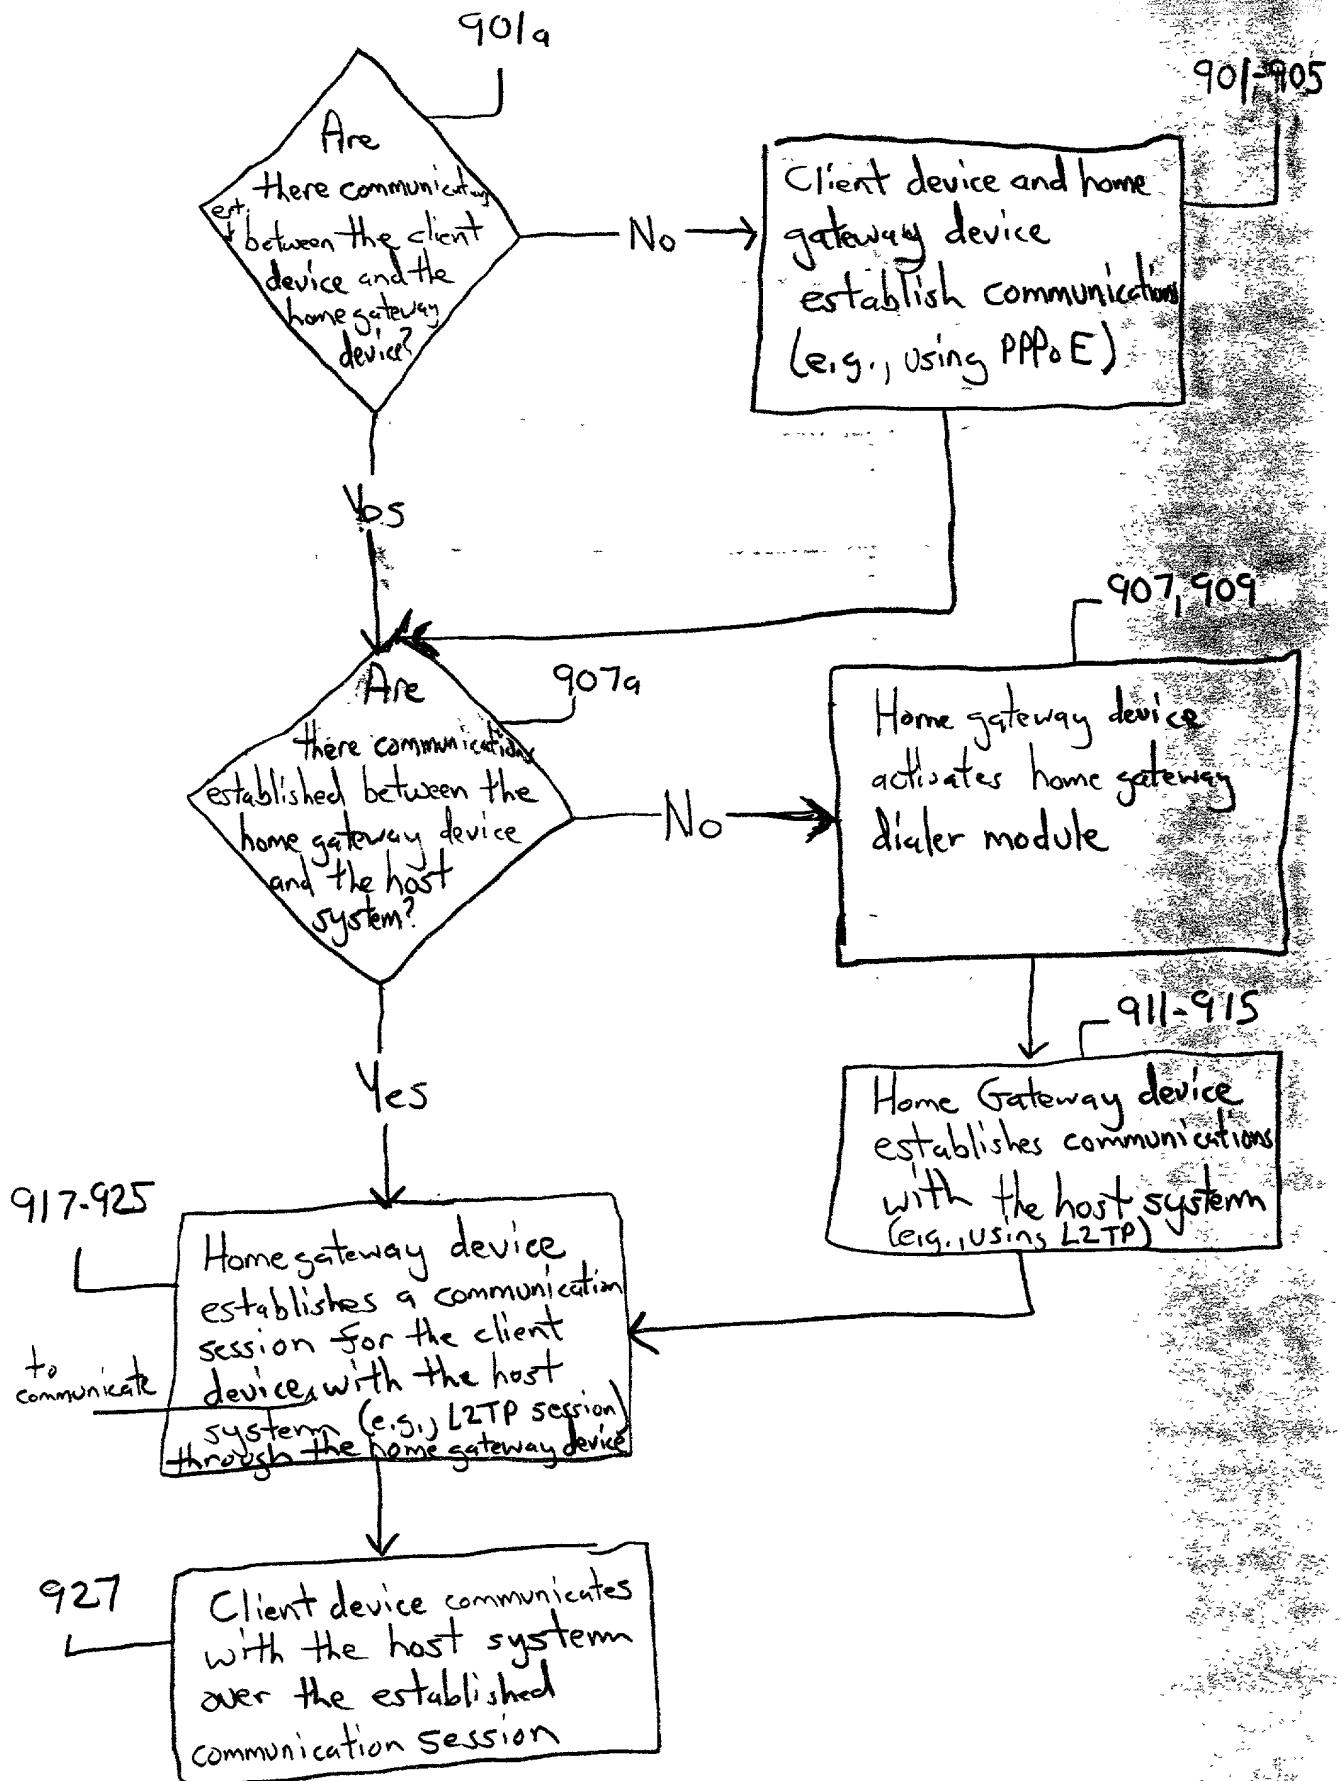 901a
Are
there communications
est. between the client
device and the
home gateway
device?
No
901-905
Client device and home
gateway device
establish communications
(e.g., using PPPoE)
Yes
907a
Are
there communications
established between the
home gateway device
and the host
system?
No
907, 909
Home gateway device
activates home gateway
dialer module
911-915
Home Gateway device
establishes communications
with the host system
(e.g., using L2TP)
Yes
917-925
Home gateway device
establishes a communication
session for the client
device with the host
to
communicate
system (e.g., L2TP session)
through the home gateway device
927
Client device communicates
with the host system
over the established
communication session